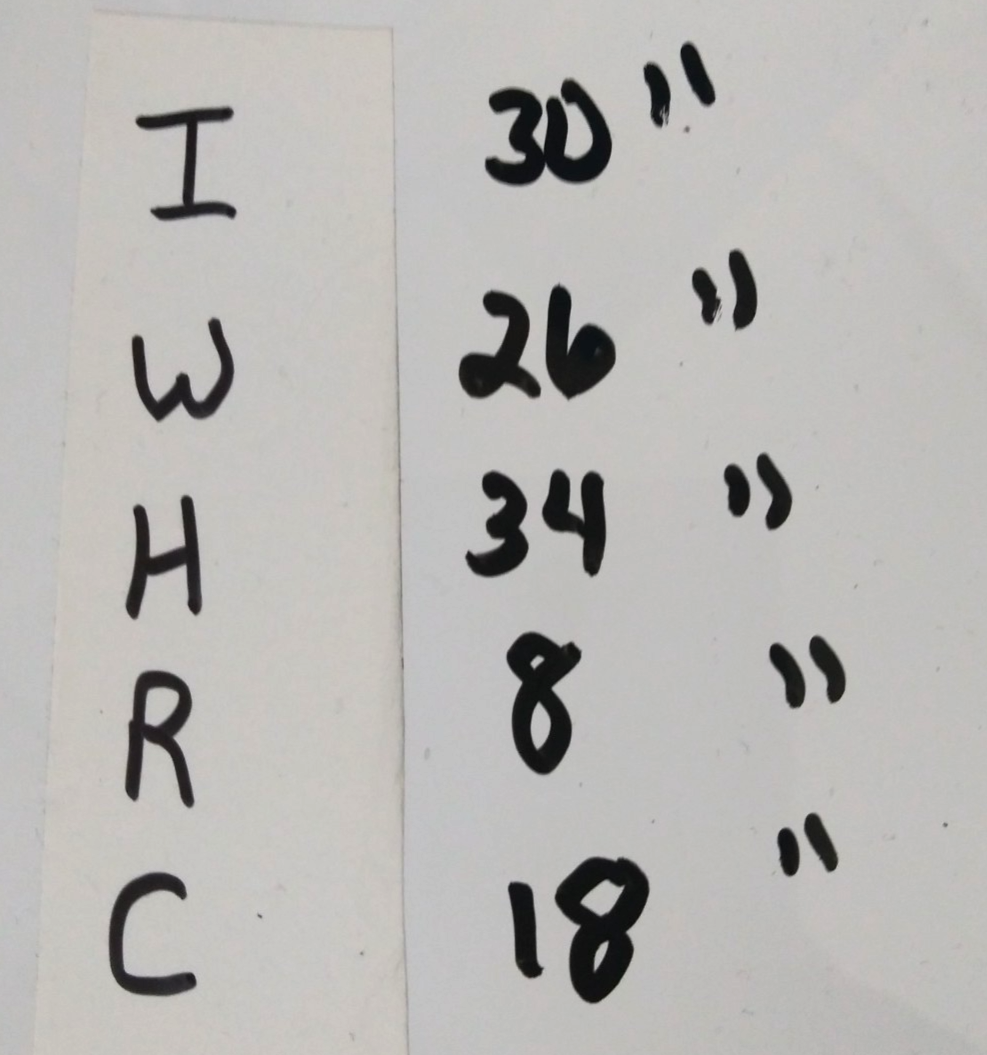 I 30"
W 26"
H 34"
R 8"
C 18"